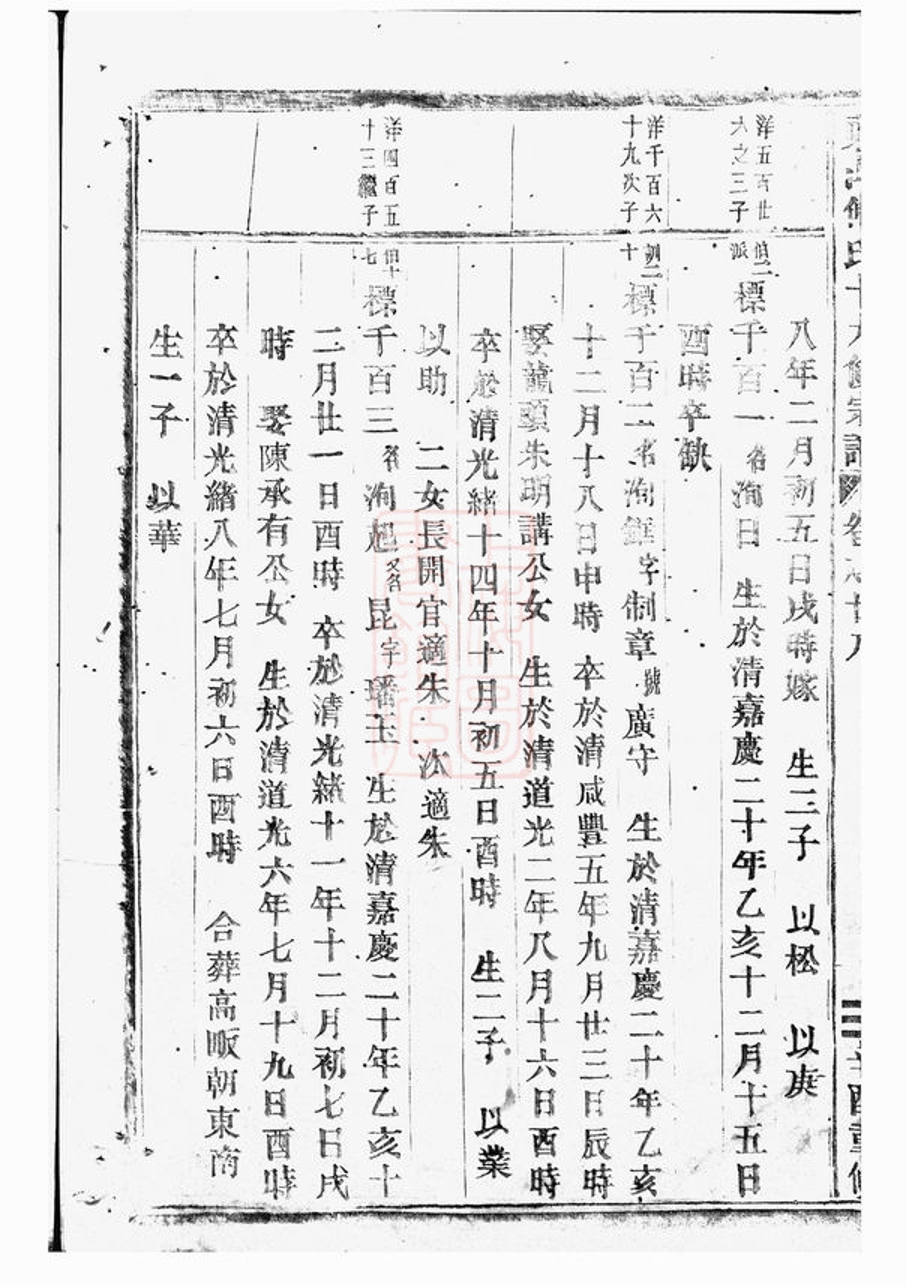 八年二月初五日戌時嫁 生二子 以松 以庚
洋五百廿
六之三子
派
標千百一名洵日 生於清嘉慶二十年乙亥十二月十五日
酉時卒缺
洋千百六
十九次子
十
標千百二名洵 字制章號廣守 生於清嘉慶二十年乙亥
十二月十八日申時 卒於清咸豐五年九月廿三日辰時
娶龍頭朱明講公女 生於清道光二年八月十六日酉時
卒於清光緒十四年十月初五日酉時 生二子 以業
以助 二女長開官適朱 次適朱
洋四百五
十三繼子
七
標千百三名洵旭又名昆字璠玉 生於清嘉慶二十年乙亥十
二月廿一日酉時 卒於清光緒十一年十二月初七日戌
時 娶陳承有公女 生於清道光六年七月十九日酉時
卒於清光緒八年七月初六日酉時 合葬高畈朝東南
生一子 以華